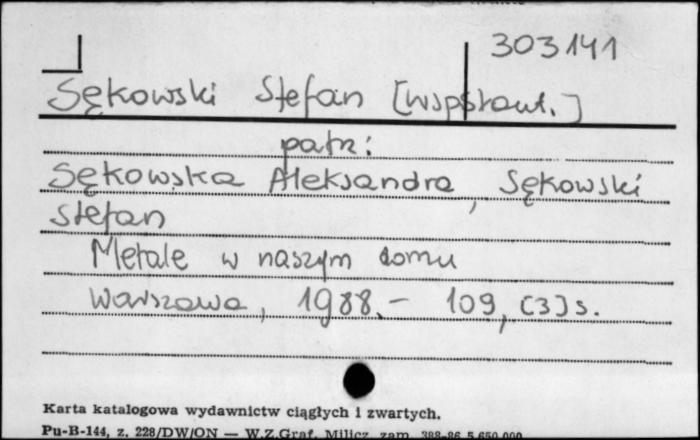 303141
Sękowski Stefan [współaut.]
patrz:
Sękowska Aleksandra, Sękowski
Stefan
Metale w naszym domu
Warszawa, 1988.- 109, [3] s.
Karta katalogowa wydawnictw ciągłych i zwartych.
Pu-B-144, z. 228/DW/ON — W.Z.Graf. Milicz, zam. 388-86 5.650.000